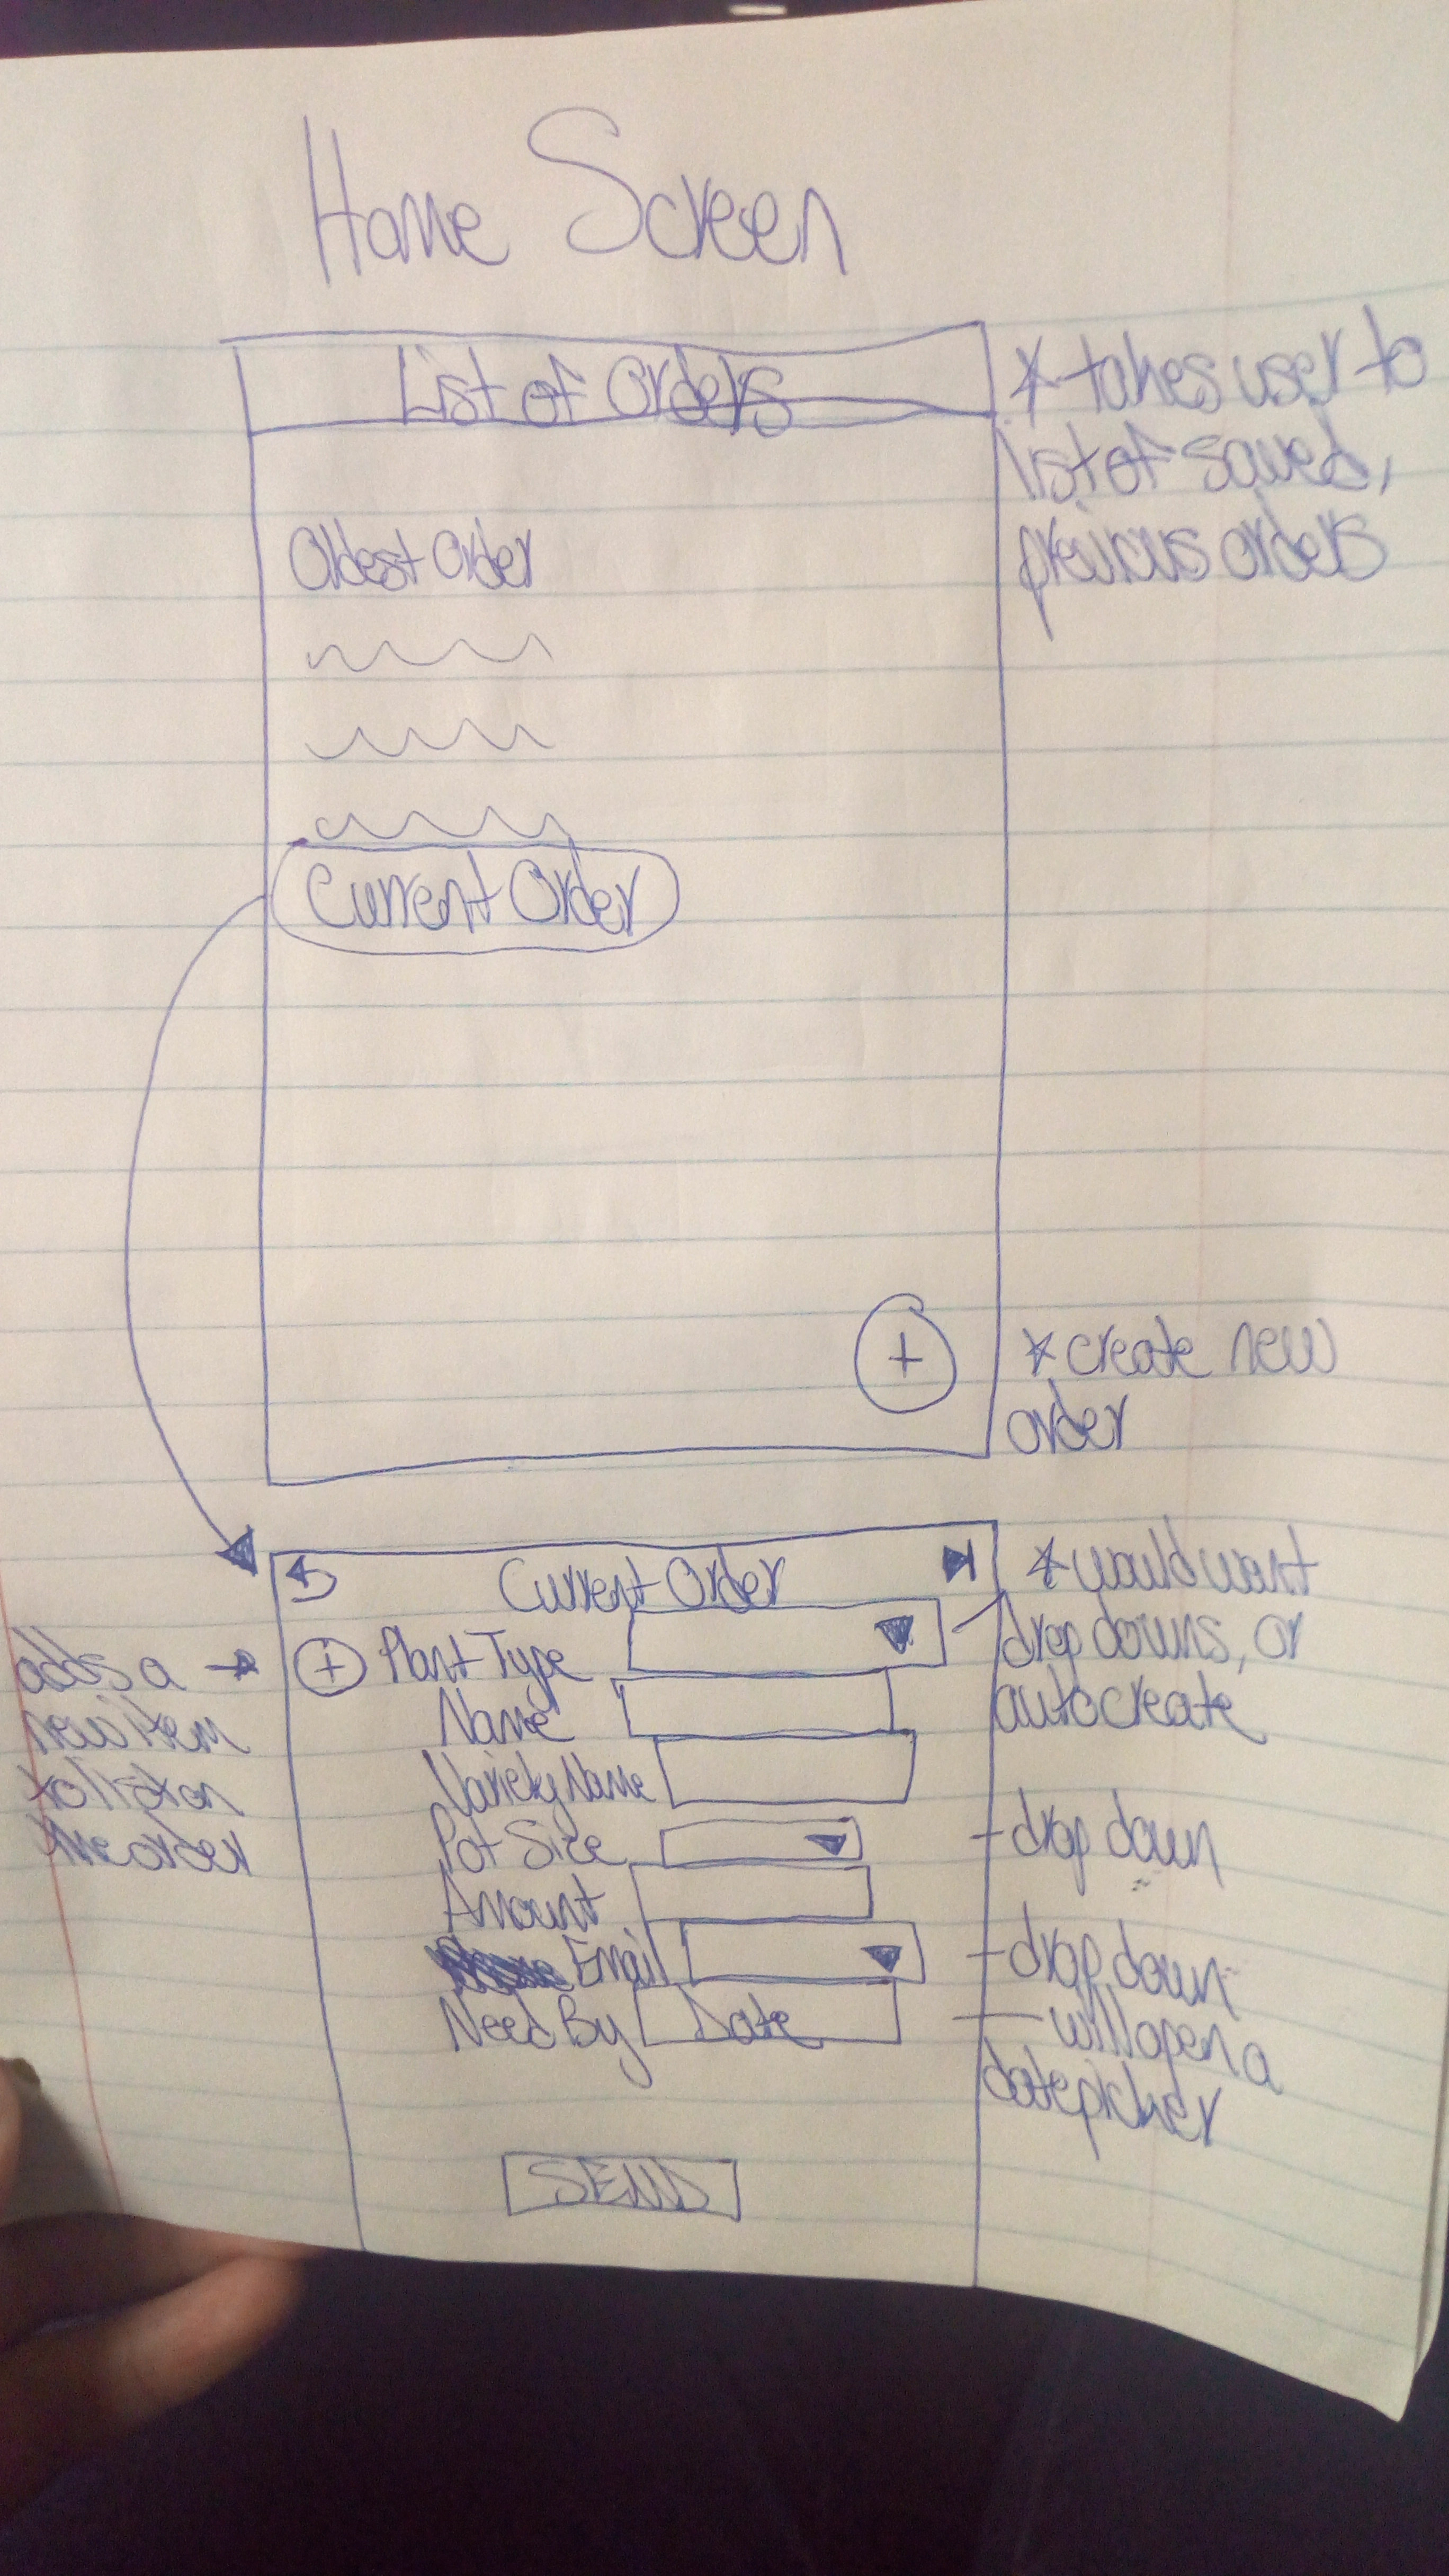 Home Screen
List of Orders
* takes user to
list of saved,
previous orders
Oldest Order
Current Order
+
* create new
order
Current Order
* would want
drop downs, or
autocreate
adds a
new item
to list on
the order
+ Plant Type
Name
Variety Name
Pot Size
- drop down
Amount
Email
- drop down
Need By Date
- will open a
datepicker
SEND